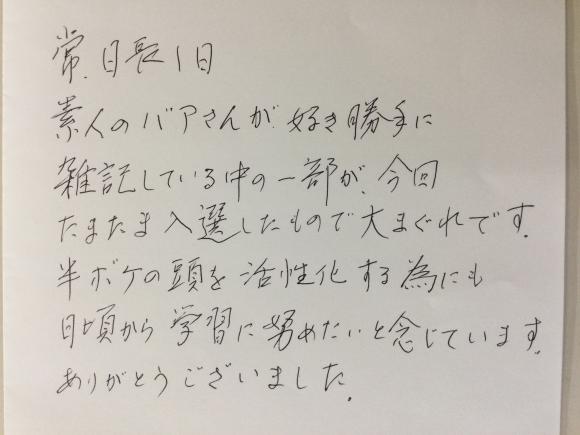 常.日長1日
素人のバアさんが好き勝手に
雑記している中の一部が、今回
たまたま入選したもので大まぐれです。
半ボケの頭を活性化する為にも
日頃から学習に努めたいと念じています。
ありがとうございました。